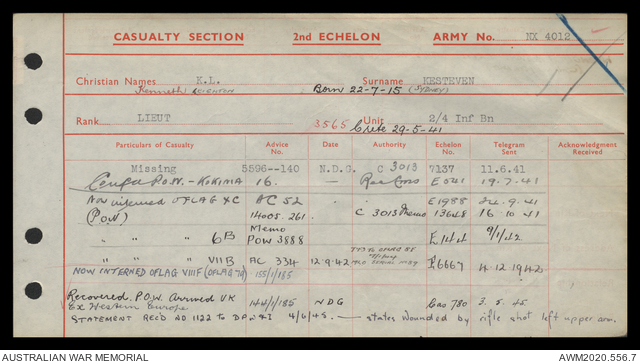 CASUALTY SECTION 2nd ECHELON ARMY No. NX 4012
Christian Names K.L. Surname KESTEVEN
Kenneth LEIGHTON Born 22-7-15 (SYDNEY)
Rank LIEUT Unit 2/4 Inf Bn
3565 Crete 29-5-41
Particulars of Casualty Advice No. Date Authority Echelon No. Telegram Sent Acknowledgment Received
Missing 5596--140 N.D.G. C 3013 7137 11.6.41
Confd P.O.W. - KOKINIA 16. — Red Cross E041 19.7.41
Now interned OFLAG XC AC 52 E1988 24.9.41
(POW) 14005.261. C 3013 Memo 13648 16 10 41
" " " 6B Memo POW 3888 E144 9/1/42
" " " VIIB AC 334 12.9.42 E6667 4.12.1942
NOW INTERNED OFLAG VIIIF (OFLAG 79) 155/1/185
Recovered P.O.W. Arrived UK 144/1/185 NDG Cas 780 3.5.45
Ex Western Europe
STATEMENT REC'D NO 1122 TO DPW&I 4/6/45. — states wounded by rifle shot left upper arm.
AUSTRALIAN WAR MEMORIAL AWM2020.556.7